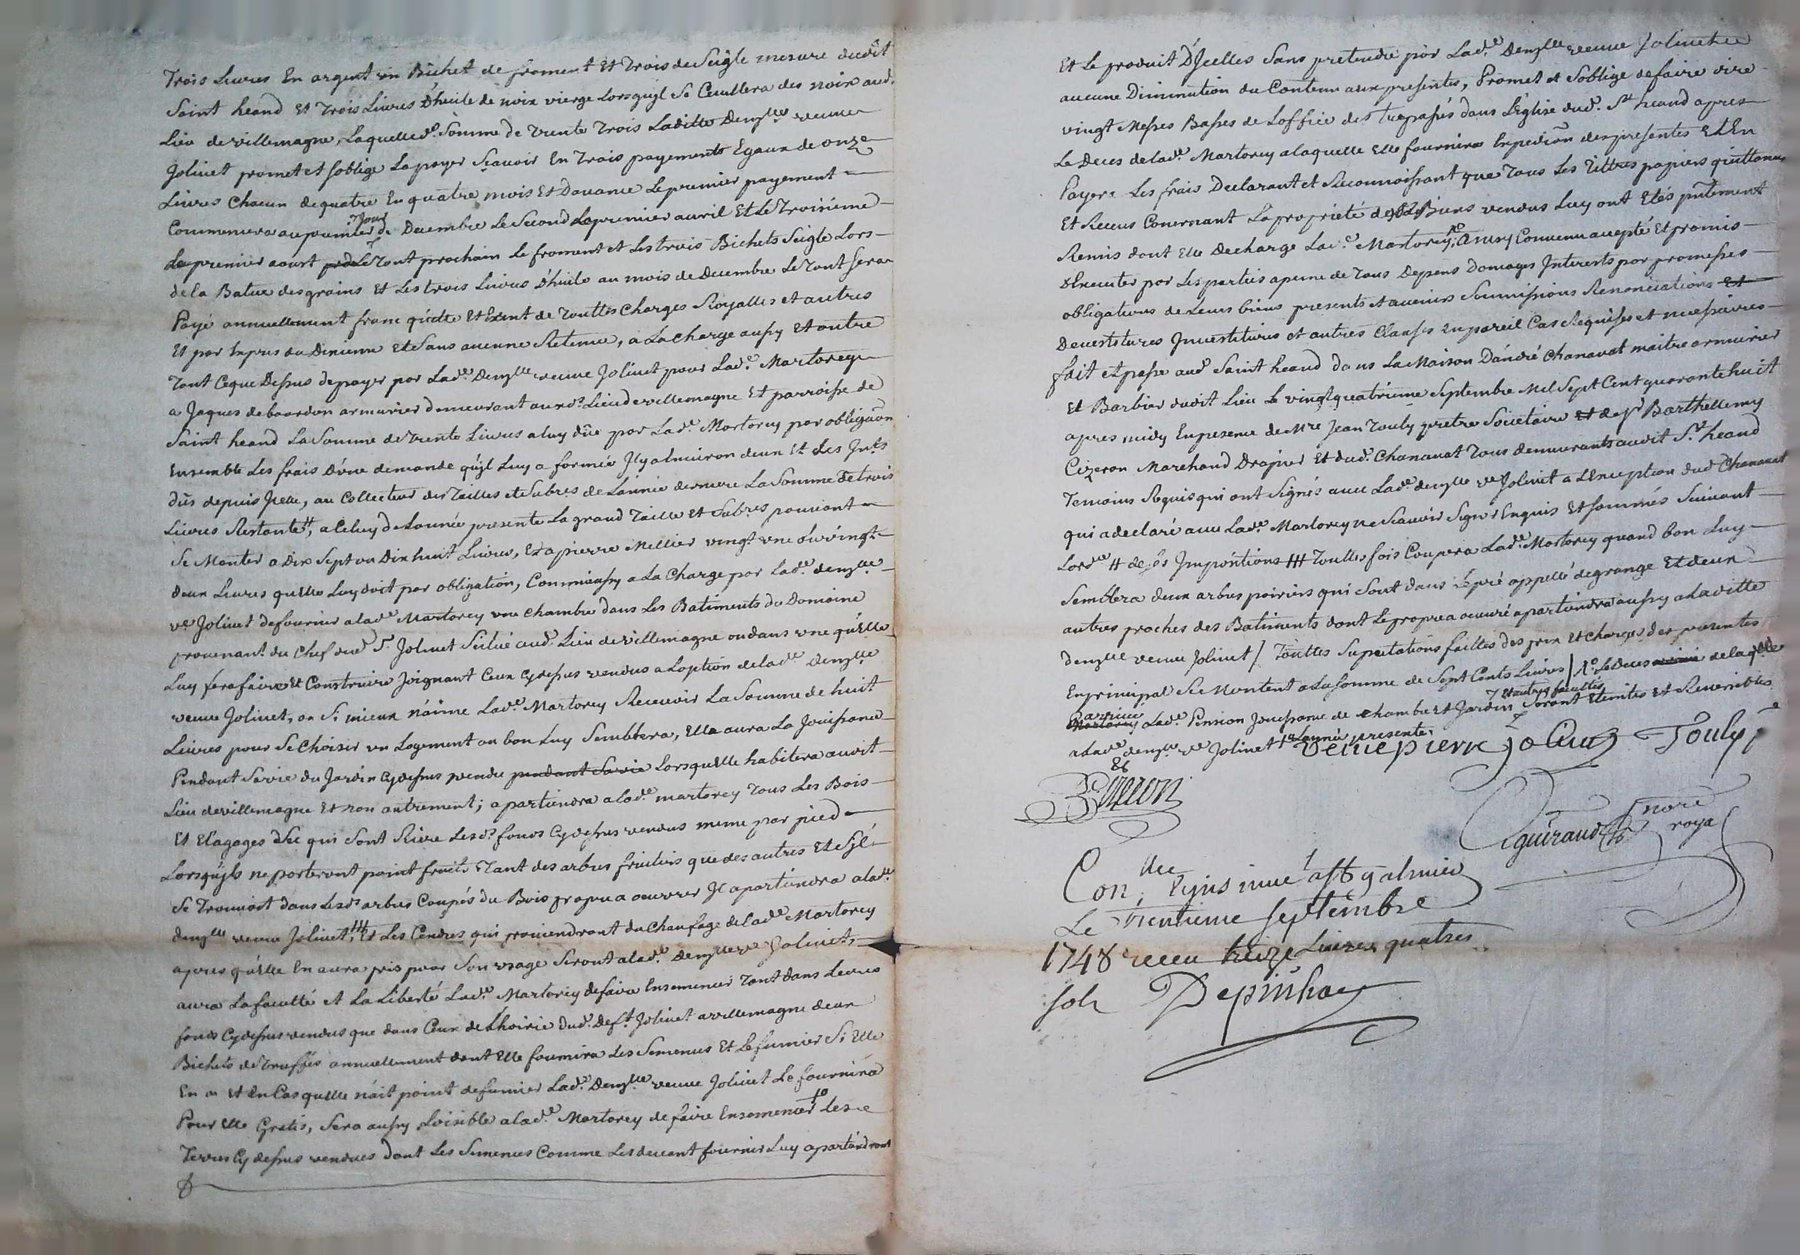 Trois Livres En argent un Bichet de froment Et Trois de Seigle mesure dudit
Saint heand Et Trois Livres d'huile de noix vierge Lorsquyl Se Ceuillera des noix aud.
Lieu de villemagne, Laquelle d. Somme de Trente Trois Laditte Demzlle veuve
Jolivet promet et soblige La payer Sçavoir En Trois payements Egaux de onze
Livres Chacun de quatre En quatre mois Et Davance Le premier payement
Commencera au premier Jour de Decembre Le Second Le premier avril Et Le Troisieme
Le premier aoust Le Tout prochain Le froment et Les trois Bichets Seigle Lors
de la Batue des grains Et Les trois Livres D'huile au mois de Decembre Le Tout Sera
Payé annuellement franc quitte Et Exent de Touttes Charges Royalles et autres
Et par Exprès du Dixieme Et Sans aucune Retenue, a La charge aussy Et outre
Tout Ceque Dessus de payer par Lad.e Demzlle veuve Jolivet pour Lad.e Martorey
a Jaques de bourdon armurier demeurant aud. Lieu de villemagne Et parroisse de
Saint heand La Somme de Trente Livres a luy düe par Lad.e Martorey par obligaõn
Ensemble Les frais D'une demande qu'yl Luy a formée Jl y a Environ deux Et Les Jnt.s
Dûs depuis Jcelle, au Collecteur des Tailles et Subces de L'année derniere La Somme de Trois
Livres Restante #, a Celuy de L'année presente La grand Taille et Subces pouvant
Se Monter a Dix Sept ou Dix huit Livres, Et a pierre Mellier vingt une ou vingt
deux Livres quelle Luy doit par obligation, Comme aussy a La Charge par Lad.e demzlle
ve Jolivet de fournir a lad.e Martorey une Chambre dans Les Batiments du Domaine
provenant du Chef dud. Sr Jolivet Situé aud. Lieu de villemagne ou dans une qu'Elle
Luy fera faire et Construire Joignant Ceux Cydessus vendus a L'option de lad.e Demzlle
veuve Jolivet, ou Si mieux n'aime Lad.e Martorey Recevoir La Somme de huit
Livres pour Se Choisir un Logement ou bon Luy Semblera, Elle aura La Jouissance
Pendant Sa vie du Jardin Cydessus vendu pendant Sa vie Lorsqu'elle habitera audit
Lieu de villemagne Et non autrement; apartiendra a lad.e martorey Tous Les Bois
Et Elagages Sec qui Sont Rière Lesd. fonds Cydessus vendus meme par pied
Lorsqu'yls ne porteront point fruits Tant des arbres fruitiers que des autres Et Syl
Se Trouvoit dans Lesd. arbres Coupés du Bois propre a oeuvrer Jl apartiendra a lad.e
demzlle veuve Jolivet, ## Et Les Cendres qui proviendront du Chaufage de Lad.e Martorey
apres qu'elle En aura pris pour Son usage Seront a lad.e Demzlle ve Jolivet,
aura La faculté et La Liberté Lad.e Martorey de faire Ensemencer Tant dans Les
fonds Cydessus vendus que dans Ceux de L'hoirie dud. def.t Jolivet a villemagne deux
Bichets de Truffes annuellement dont Elle fournira Les Semences Et Le fumier Si Elle
En a Et En Cas quelle n'ait point de fumier Lad.e Demzlle veuve Jolivet Le fournira
Pour Elle Gratis, Sera aussy Loisible a lad.e Martorey de faire Ensemencer Les
Terres Cydessus vendues dont Les Semences Comme Les devant fournir Luy apartiendront
Et Le produit D'Jcelles Sans pretendre par Lad.e Demzlle veuve Jolivet
aucune Diminution du Contenu aux presentes, Promet et Soblige de faire dire
vingt Messes Basses de Loffice des Trepassés dans L'Eglise dud. St heand apres
Le Deces de lad.e Martorey a laquelle Elle fournira Expediõn des presentes Et En
Payera Les frais Declarant et Reconnoissant que Tous Les Tittres papiers quittances
Et Recus Concernant La proprieté desd. Biens vendus Luy ont Etés pñtement
Remis dont Elle Decharge Lad.e Martorey, ainsy Convenu accepté Et promis
d'Executer par Les parties a peine de Tous Depens domages Jnterests par promesses
obligations de Leurs biens presents et avenirs Soumissions Renonciations Et
Devestitures Jnvestitures et autres Clauses En pareil Cas Requises et necessaires
fait et passe aud. Saint heand dans La Maison D'andré Chanavat maitre armurier
Et Barbier dudit Lieu Le vingt quatrieme Septembre Mil Sept Cent quarante huit
apres midy En presence de Mre Jean Touly pretre Societaire Et de Sr Barthellemy
Cizeron Marchand Drapier Et dud. Chanavat Tous demeurants audit St heand
Temoins Requis qui ont Signés avec Lad.e demzlle ve Jolivet a L'Exception dud. Chanavat
qui a declaré avec Lad.e Martorey ne Scavoir Signer Enquis Et Sommés Suivant
Lord.ce # de ses Jmpositions ## Touttes fois Coupera Lad.e Martorey quand bon Luy
Semblera deux arbres poiriers qui Sont dans Le pré appellé de grange Et deux
autres proches des Batiments dont Le propre a oeuvré apartiendra aussy a Laditte
Demzlle veuve Jolivet / Touttes Suputations faittes des prix Et charges des presentes
En principal Se Montent a La Somme de Sept Cents Livres / Le Deces de laq.lle
arrivée a Lad.e Pension Jouissance de chambre Et Jardin Et autres facultés Seront Eteintes et Reversibles
a lad.e demzlle ve Jolivet L'année presente.
veuve pierre jolivet Touly p.e
BCizeron
guiraud nore royal
Con.lee
Le trentieme septembre
1748 receu treize Livres quatres
sols Depinhac